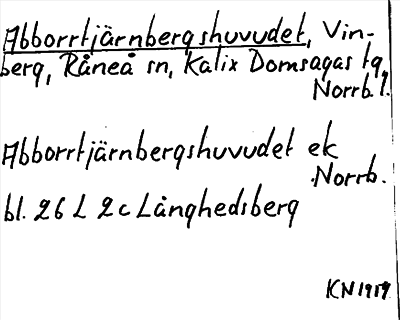 Abborrtjärnbergshuvudet, Vin-
berg, Råneå sn, Kalix Domsagas tg,
Norrb. l.
Abborrtjärnbergshuvudet ek
Norrb.
bl. 26 L 2c Långhedsberg
KN 1959